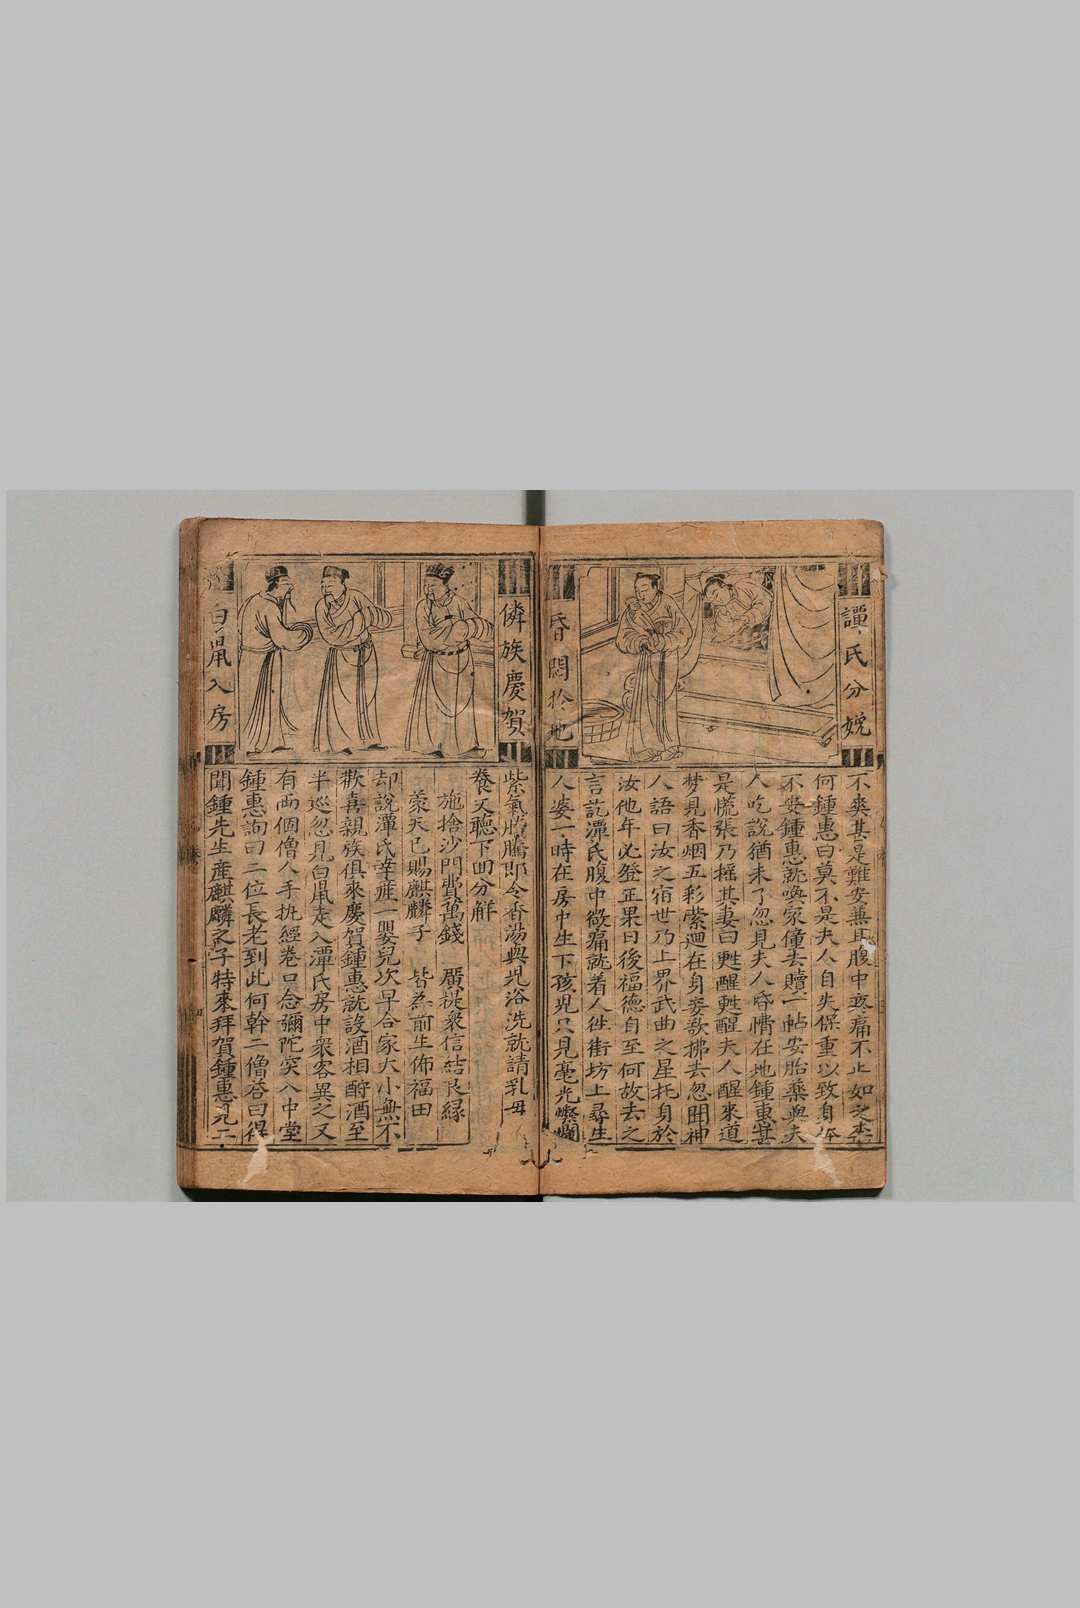 譂氏分娩
昏悶於地
不爽甚是難安兼且腹中疼痛不止如之奈
何鍾惠曰莫不是夫人自失保重以致身体
不安鍾惠就喚家僮去贖一帖安胎藥與夫
人吃說猶未了忽見夫人昏憒在地鍾惠甚
是慌張乃摇其妻曰甦醒甦醒夫人醒來道
梦見香烟五彩縈迴在身妾欲拂去忽聞神
人語曰汝之宿世乃上界武曲之星托身於
汝他年必登正果日後福德自至何故去之
言訖潭氏腹中欲痛就着人徃街坊上尋生
人婆一時在房中生下孩児只見毫光燦爛
隣族慶賀
白鼡入房
紫氣騰騰即令香湯與児浴洗就請乳母
養又聽下回分解
施捨沙門費萬錢 廣提衆信結良縁
蒙天已賜麒麟子 皆為前生佈福田
却說潭氏幸產一嬰兒次早合家大小無不
歡喜親族俱來慶賀鍾惠就設酒相酧酒至
半巡忽見白鼡走入潭氏房中衆客異之又
有両個僧人手执經卷口念彌陀突入中堂
鍾惠詢曰二位長老到此何幹二僧答曰得
聞鍾先生産麒麟之子特來拜賀鍾惠見二